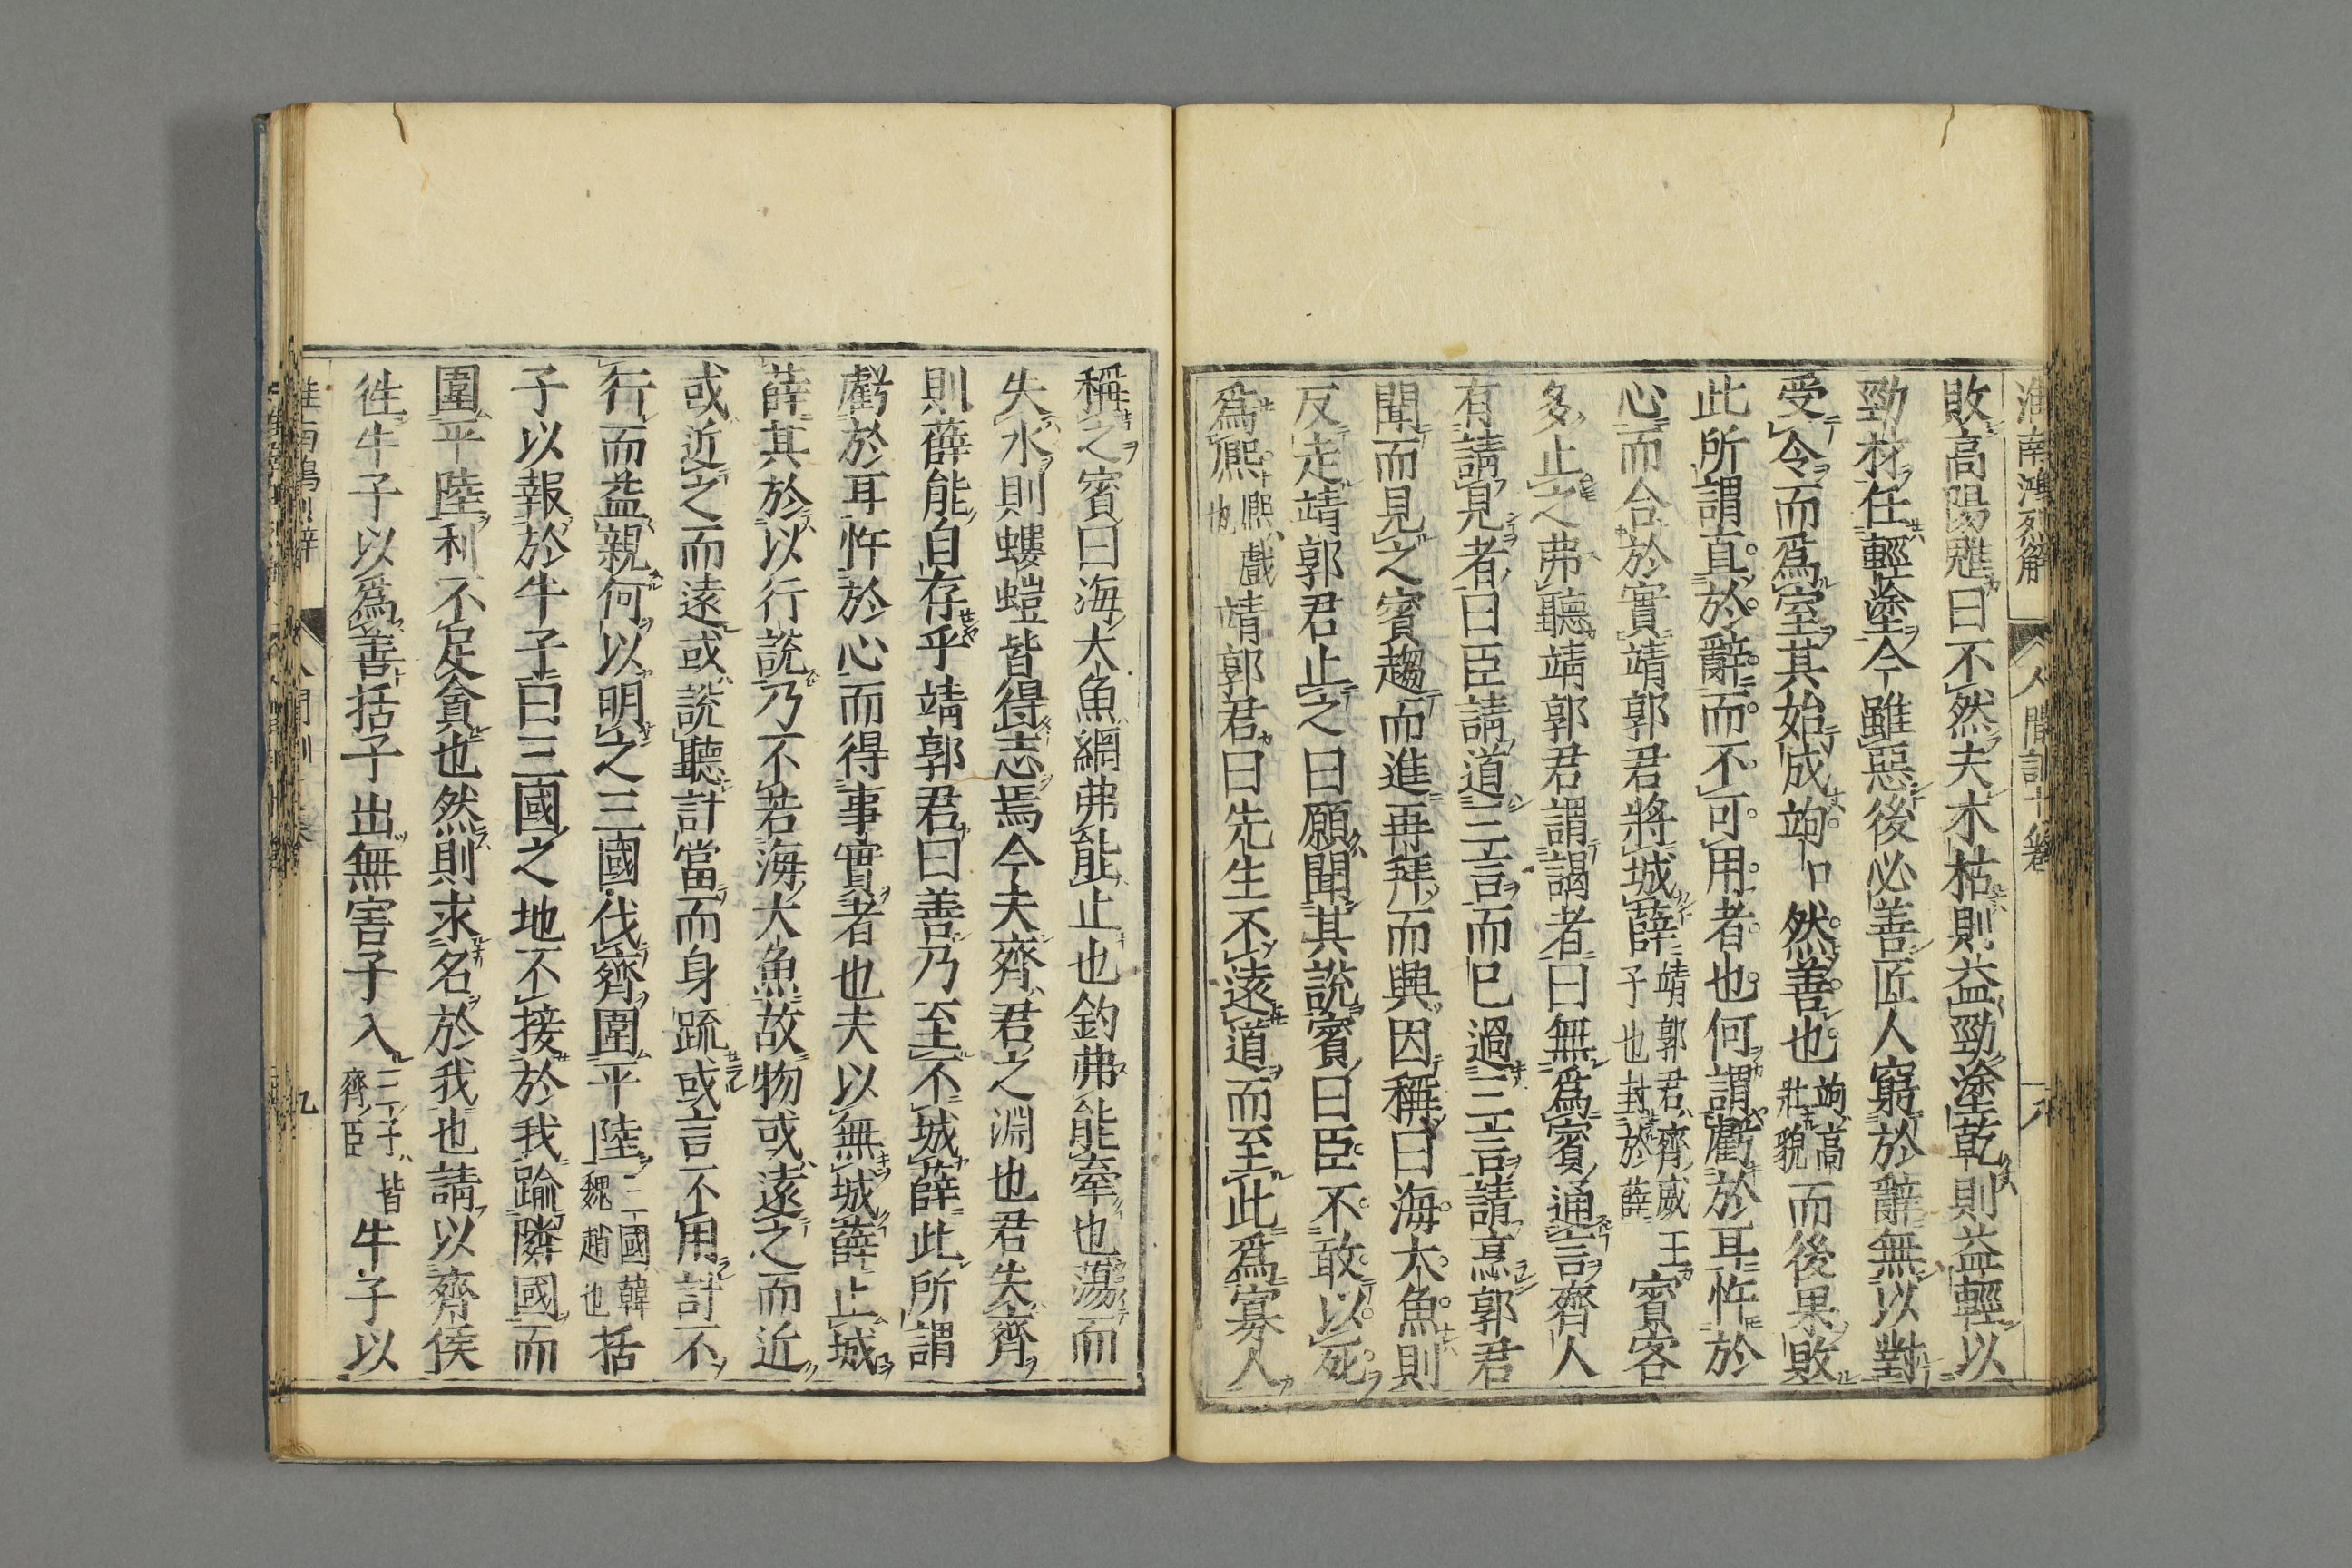 淮南鴻烈解 人間訓十卷 十八
敗高陽魋曰不然夫木枯則益勁塗乾則益輕以
勁材任輕塗今雖惡後必善匠人窮於辭無以對
受令而爲室其始成竘然善也竘高壯貌而後果敗
此所謂直於辭而不可用者也何謂虧於耳忤於
心而合於實靖郭君將城薛靖郭君齊威王子也封於薛賓客
多止之弗聽靖郭君謂謁者曰無爲賓通言齊人
有請見者曰臣請道三言而已過三言請烹郭君
聞而見之賓趨而進再拜而興因稱曰海大魚則
反走靖郭君止之曰願聞其說賓曰臣不敢以死
爲熈熈戲也靖郭君曰先生不遠道而至此爲寡人
稱之賓曰海大魚網弗能止也釣弗能牽也蕩而
失水則螻螘皆得志焉今夫齊君之淵也君失齊
則薛能自存乎靖郭君曰善乃至不城薛此所謂
虧於耳忤於心而得事實者也夫以無城薛止城
薛其於以行說乃不若海大魚故物或遠之而近
或近之而遠或說聽計當而身疏或言不用計不
行而益親何以明之三國伐齊圍平陸三國韓魏趙也括
子以報於牛子曰三國之地不接於我踰隣國而
圍平陸利不足貪也然則求名於我也請以齊侯
徃牛子以爲善括子出無害子入三子皆齊臣牛子以
人間訓
九